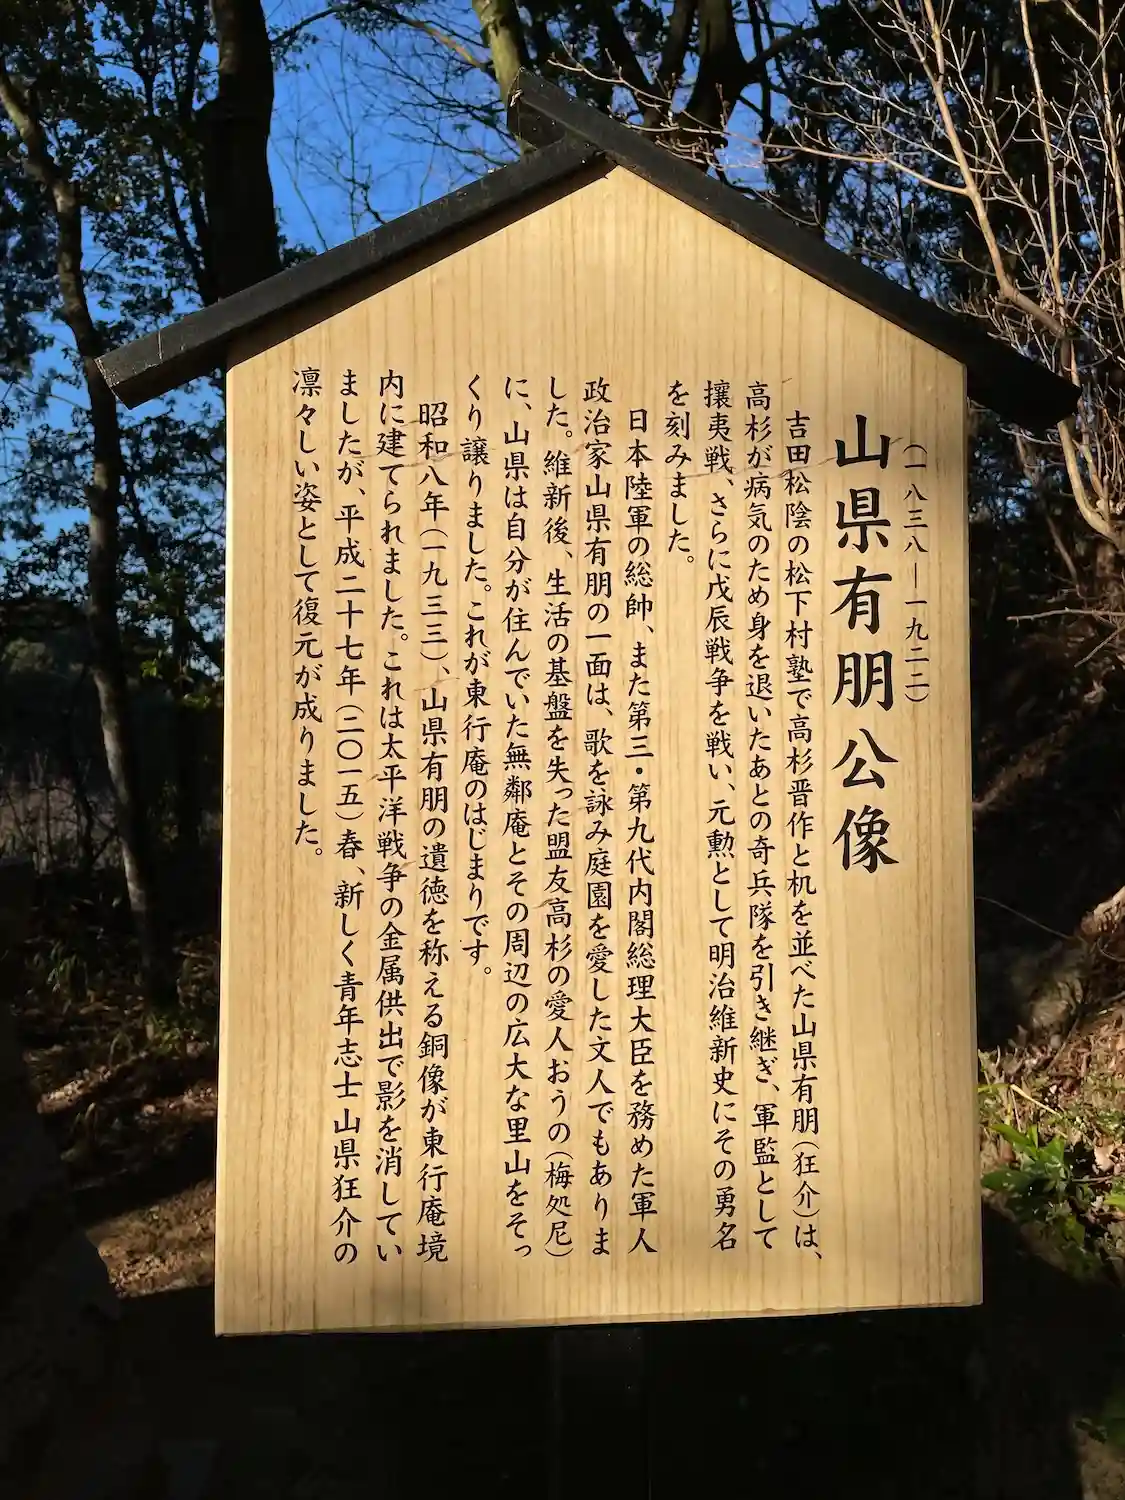 (一八三八―一九二二)
山県有朋公像
吉田松陰の松下村塾で高杉晋作と机を並べた山県有朋(狂介)は、
高杉が病気のため身を退いたあとの奇兵隊を引き継ぎ、軍監として
攘夷戦、さらに戊辰戦争を戦い、元勲として明治維新史にその勇名
を刻みました。
日本陸軍の総帥、また第三・第九代内閣総理大臣を務めた軍人
政治家山県有朋の一面は、歌を詠み庭園を愛した文人でもありま
した。維新後、生活の基盤を失った盟友高杉の愛人おうの(梅処尼)
に、山県は自分が住んでいた無鄰庵とその周辺の広大な里山をそっ
くり譲りました。これが東行庵のはじまりです。
昭和八年(一九三三)、山県有朋の遺徳を称える銅像が東行庵境
内に建てられました。これは太平洋戦争の金属供出で影を消してい
ましたが、平成二十七年(二〇一五)春、新しく青年志士山県狂介の
凛々しい姿として復元が成りました。